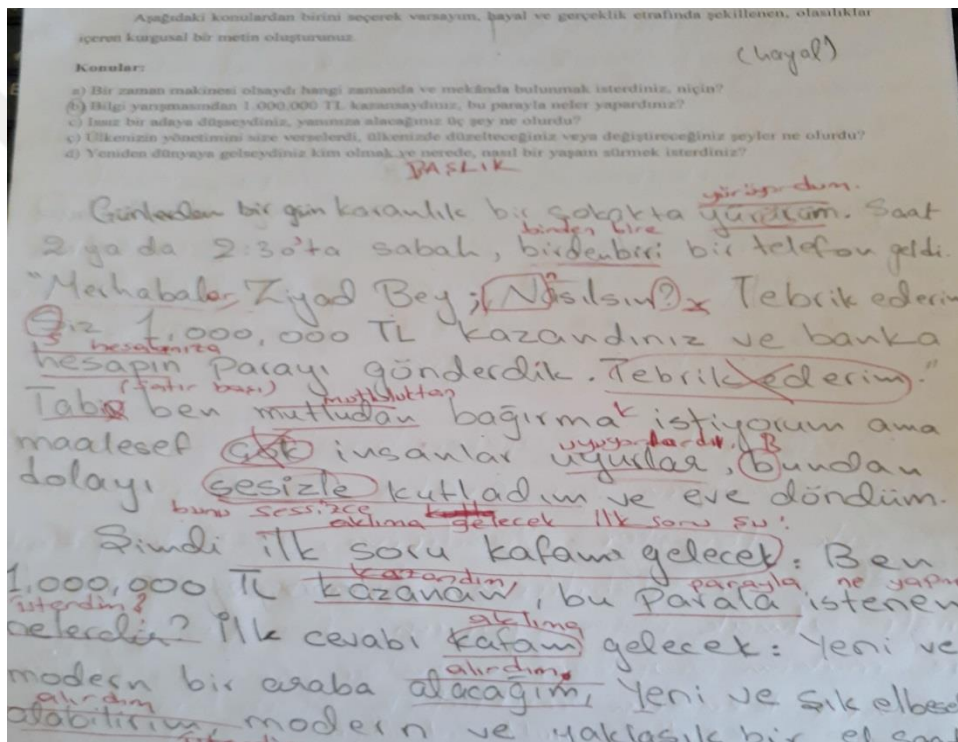 Aşağıdaki konulardan birini seçerek varsayım, hayal ve gerçeklik etrafında şekillenen, olasılıklar
içeren kurgusal bir metin oluşturunuz.
(hayal)
Konular:
a) Bir zaman makinesi olsaydı hangi zamanda ve mekânda bulunmak isterdiniz, niçin?
b) Bilgi yarışmasından 1.000.000 TL kazansaydınız, bu parayla neler yapardınız?
c) Issız bir adaya düşseydiniz, yanınıza alacağınız üç şey ne olurdu?
ç) Ülkenizin yönetimini size verselerdi, ülkenizde düzelteceğiniz veya değiştireceğiniz şeyler ne olurdu?
d) Yeniden dünyaya gelseydiniz kim olmak ve nerede, nasıl bir yaşam sürmek isterdiniz?
BAŞLIK
yürüyordum.
Günlerden bir gün karanlık bir sokakta yürürüm. Saat
birden bire
2 ya da 2:30'ta sabah, birdenbiri bir telefon geldi.
"Merhabalar Ziyad Bey, Nasılsın? Tebrik ederim
Siz 1,000,000 TL kazandınız ve banka
hesabınıza
hesapın parayı gönderdik. Tebrik ederim."
(satır başı) mutluluktan
Tabi ben mutludan bağırmak istiyorum ama
uyuyorlardı. B
maalesef çok insanlar uyurlar, bundan
dolayı sesizle kutladım ve eve döndüm.
bunu sessizce
aklıma gelecek ilk soru şu:
Şimdi ilk soru kafamı gelecek: Ben
kazandım, parayla ne yapm
1,000,000 TL kazanan, bu parala istenen
isterdim?
nelerdir? İlk cevabı kafam gelecek: Yeni ve
aklıma
alırdım.
modern bir araba alacağım, Yeni ve şık elbise
alırdım
alabilirim, modern ve yaklaşık bir